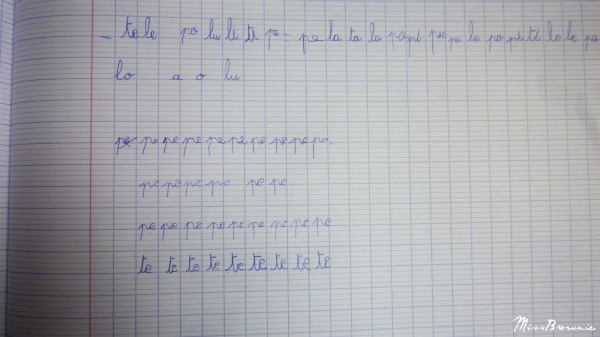 - te le po lu li ti pe - pe la ta lu pe pi pu lu po pi ti lo le pa
lo a o lu
pe pe pe pe pe pe pe pe pe pe.
pe pe pe pe pe pe
pe pe pe pe pe pe pe pe pe
te te te te te te te te te
MissBrownie